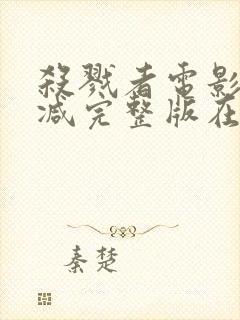 殺戮者電影
减完整版在
秦楚